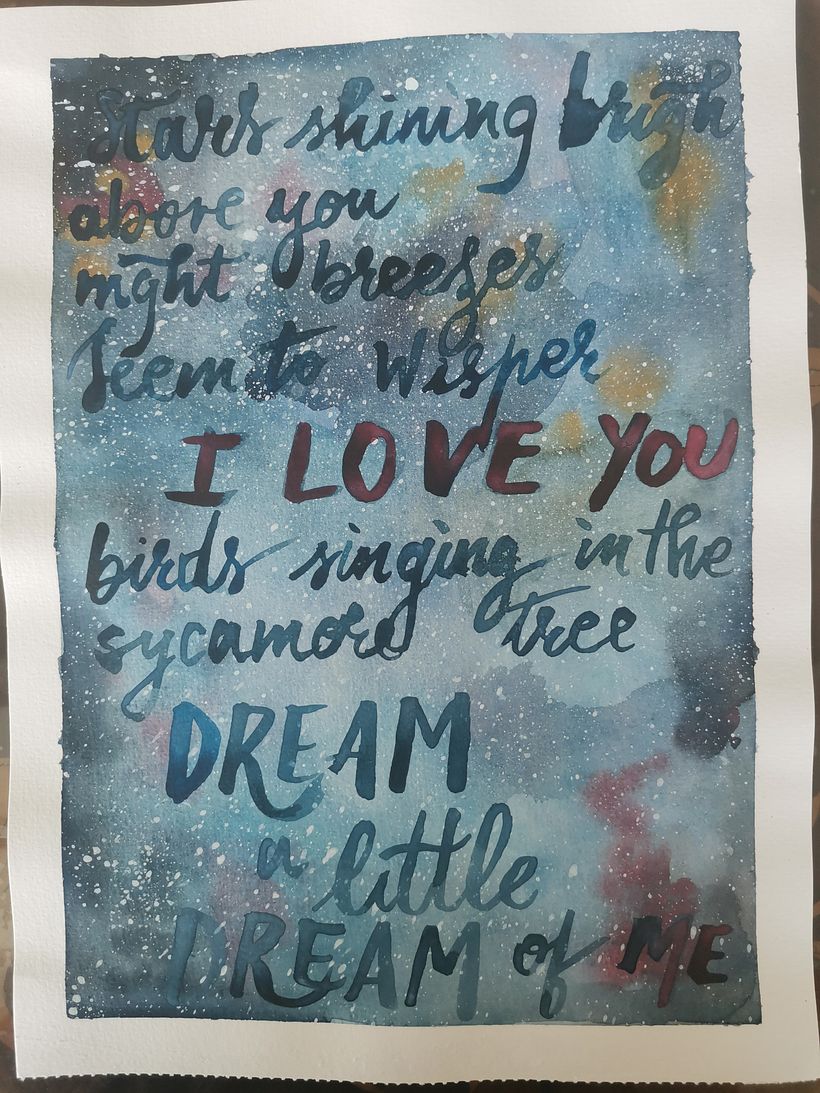 Stars shining brigh
above you
night breezes
seem to wisper
I LOVE YOU
birds singing in the
sycamore tree
DREAM
a little
DREAM of ME